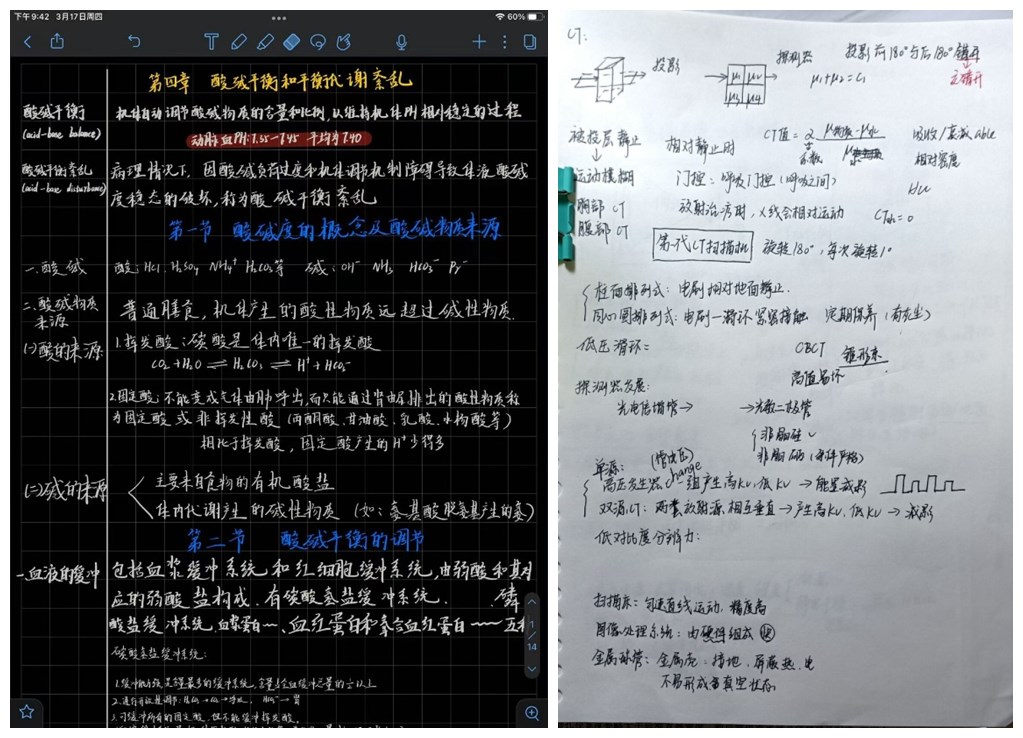 下午9:42 3月17日周四
60%
第四章 酸碱平衡和平衡代谢紊乱
酸碱平衡
(acid-base balance)
机体自动调节酸碱物质的含量和比例,以维持机体PH相对稳定的过程
动脉血PH:7.35—7.45 平均为7.40
酸碱平衡紊乱
(acid-base disturbance)
病理情况下,因酸碱负荷过度和机体调机制障碍导致体液酸碱
度稳态的破坏,称为酸碱平衡紊乱
第一节 酸碱度的概念及酸碱物质来源
一.酸碱
酸:HCl H₂SO₄ NH₄⁺ H₂CO₃等 碱:OH⁻ NH₃ HCO₃⁻ Pr⁻
二.酸碱物质
来源
普通膳食,机体产生的酸性物质远超过碱性物质.
(一)酸的来源
1.挥发酸:碳酸是体内唯一的挥发酸
CO₂+H₂O ⇌ H₂CO₃ ⇌ H⁺+HCO₃⁻
2.固定酸:不能变成气体由肺呼出,而只能通过肾由尿排出的酸性物质称
为固定酸或非挥发性酸(丙酮酸、甘油酸、乳酸、水杨酸等)
相比于挥发酸,固定酸产生的H⁺少得多
(二)碱的来源
主要来自食物的有机酸盐
体内代谢产生的碱性物质 (如:氨基酸脱氨基产生的氨)
第二节 酸碱平衡的调节
一.血液的缓冲
包括血浆缓冲系统和红细胞缓冲系统,由弱酸和其对
应的弱酸盐构成.有碳酸氢盐缓冲系统.磷
酸盐缓冲系统,血浆蛋白~、血红蛋白和氧合血红蛋白~~五种
碳酸氢盐缓冲系统:
1
/
14
3.可缓冲所有的固定酸,但不能缓冲挥发酸.
CT:
投影
μ1 μ2
μ3 μ4
探测器
μ1+μ2=C1
投影前180°与后180°错开
被投层静止
↓
运动模糊
相对静止时
CT值=α
系数
吸收/衰减 able
相对密度
Hu
门控:呼吸门控(呼吸之间)
胸部CT
腹部CT
放射治疗时,X线会相对运动
第一代CT扫描机 旋转180°,每次旋转1°
柱面排列式:电刷相对地面静止.
同心圆排列式:电刷—滑环紧密接触 定期保养(有灰尘)
低压滑环=
CBCT 锥形束
探测器发展:
光电倍增管→ →光敏二极管
非晶硅
非晶硒(条件严格)
单源:
change
高压发生器 组产生高KV,低KV→能量减影
双源CT:两套放射源,相互垂直→产生高KV,低KV→减影
低对比度分辨力:
扫描床:匀速直线运动,精度高
图像处理系统:由硬件组成 快
金属球管:金属壳:接地,屏蔽热.电
不易形成常真空状态